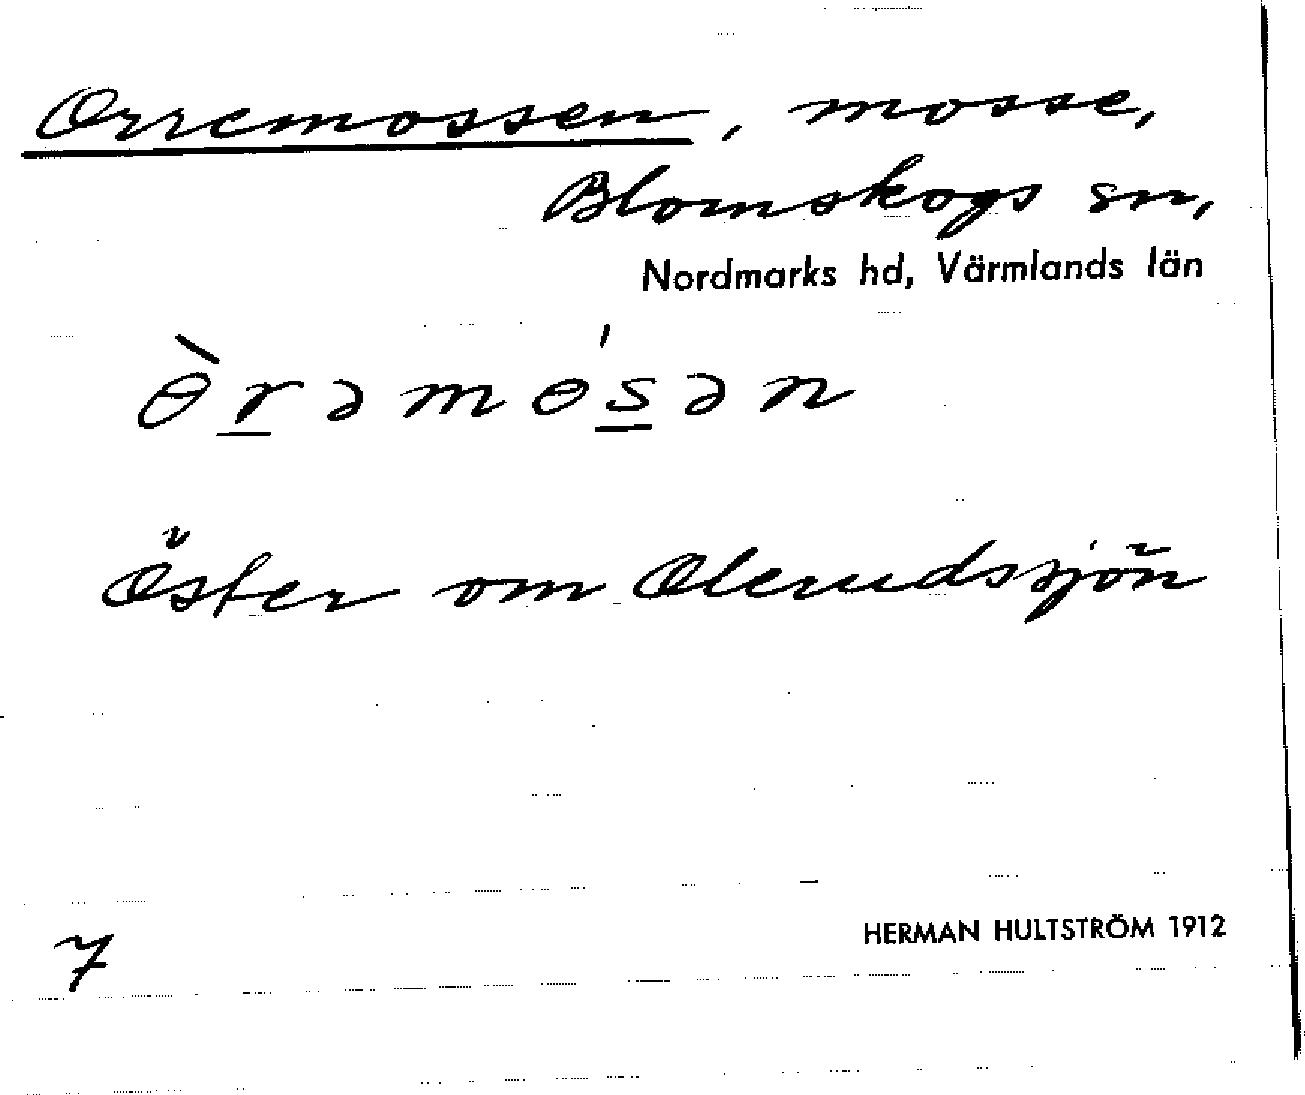 Orremossen, mosse,
Blomskogs sn,
Nordmarks hd, Värmlands län
ɵ̀r̲əmɵs̲̍ən
Öster om Olerudssjön
7
HERMAN HULTSTRÖM 1912